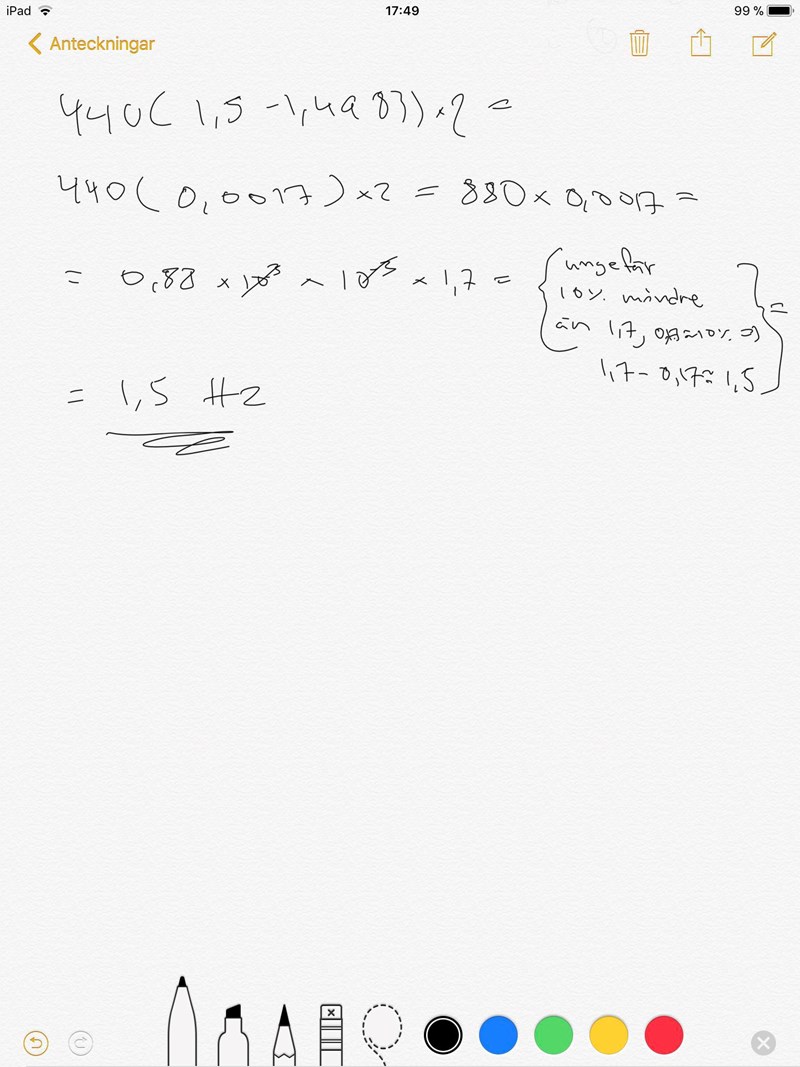 iPad 17:49 99 %
Anteckningar
440(1,5-1,4983)×2=
440(0,0017)×2=880×0,0017=
=0,88×10³×10⁻³×1,7={ungefär
10% mindre
än 1,7, 0,17≈10% ⇒
1,7-0,17≈1,5}=
=1,5 Hz